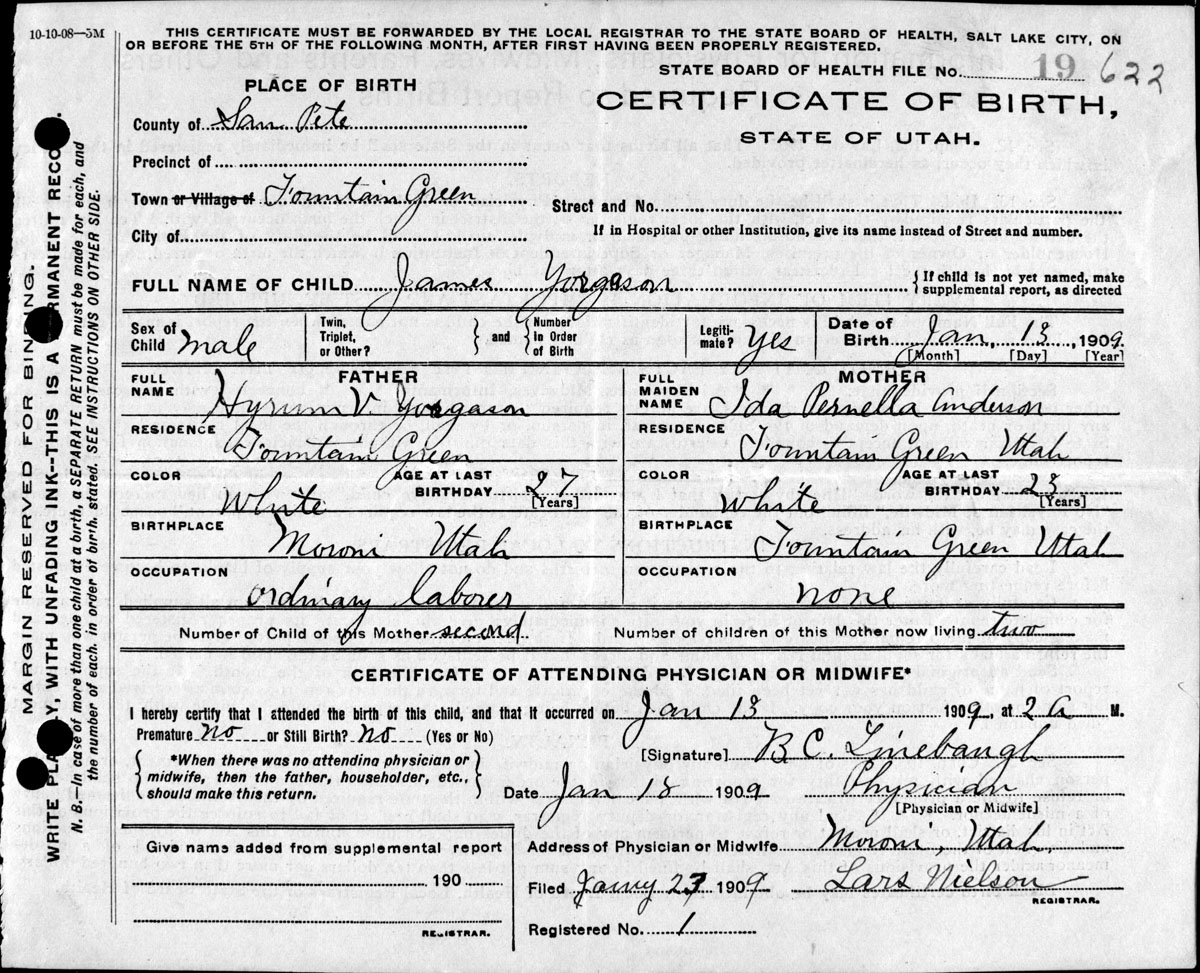 10-10-08—5M
THIS CERTIFICATE MUST BE FORWARDED BY THE LOCAL REGISTRAR TO THE STATE BOARD OF HEALTH, SALT LAKE CITY, ON
OR BEFORE THE 5TH OF THE FOLLOWING MONTH, AFTER FIRST HAVING BEEN PROPERLY REGISTERED.
STATE BOARD OF HEALTH FILE No. 19 622
PLACE OF BIRTH
CERTIFICATE OF BIRTH,
STATE OF UTAH.
County of San Pete
Precinct of
Town or Village of Fountain Green
Street and No.
City of
If in Hospital or other Institution, give its name instead of Street and number.
FULL NAME OF CHILD James Yorgason { If child is not yet named, make
supplemental report, as directed
Sex of Child male Twin, Triplet, or Other? } and { Number In Order of Birth Legiti-mate? Yes Date of Birth Jan, 13, 1909
[Month] [Day] [Year]
FATHER MOTHER
FULL NAME Hyrum V. Yorgason FULL MAIDEN NAME Ida Pernella Anderson
RESIDENCE Fountain Green RESIDENCE Fountain Green Utah
COLOR White AGE AT LAST BIRTHDAY 27 [Years] COLOR White AGE AT LAST BIRTHDAY 23 [Years]
BIRTHPLACE Moroni Utah BIRTHPLACE Fountain Green Utah
OCCUPATION ordinary laborer OCCUPATION none
Number of Child of this Mother second Number of children of this Mother now living two
CERTIFICATE OF ATTENDING PHYSICIAN OR MIDWIFE*
I hereby certify that I attended the birth of this child, and that it occurred on Jan 13 1909, at 2 a M.
Premature No or Still Birth? No (Yes or No)
[Signature] B C. Linebaugh
{ *When there was no attending physician or
midwife, then the father, householder, etc.,
should make this return. }
Date Jan 18 1909 Physician
[Physician or Midwife]
Give name added from supplemental report
190
REGISTRAR.
Address of Physician or Midwife Moroni, Utah,
Filed Januy 27 1909 Lars Nielson
REGISTRAR.
Registered No. 1
MARGIN RESERVED FOR BINDING.
WRITE PLA Y, WITH UNFADING INK--THIS IS A RMANENT RECO .
N. B.—In case of more than one child at a birth, a SEPARATE RETURN must be made for each, and
the number of each, in order of birth, stated. SEE INSTRUCTIONS ON OTHER SIDE.